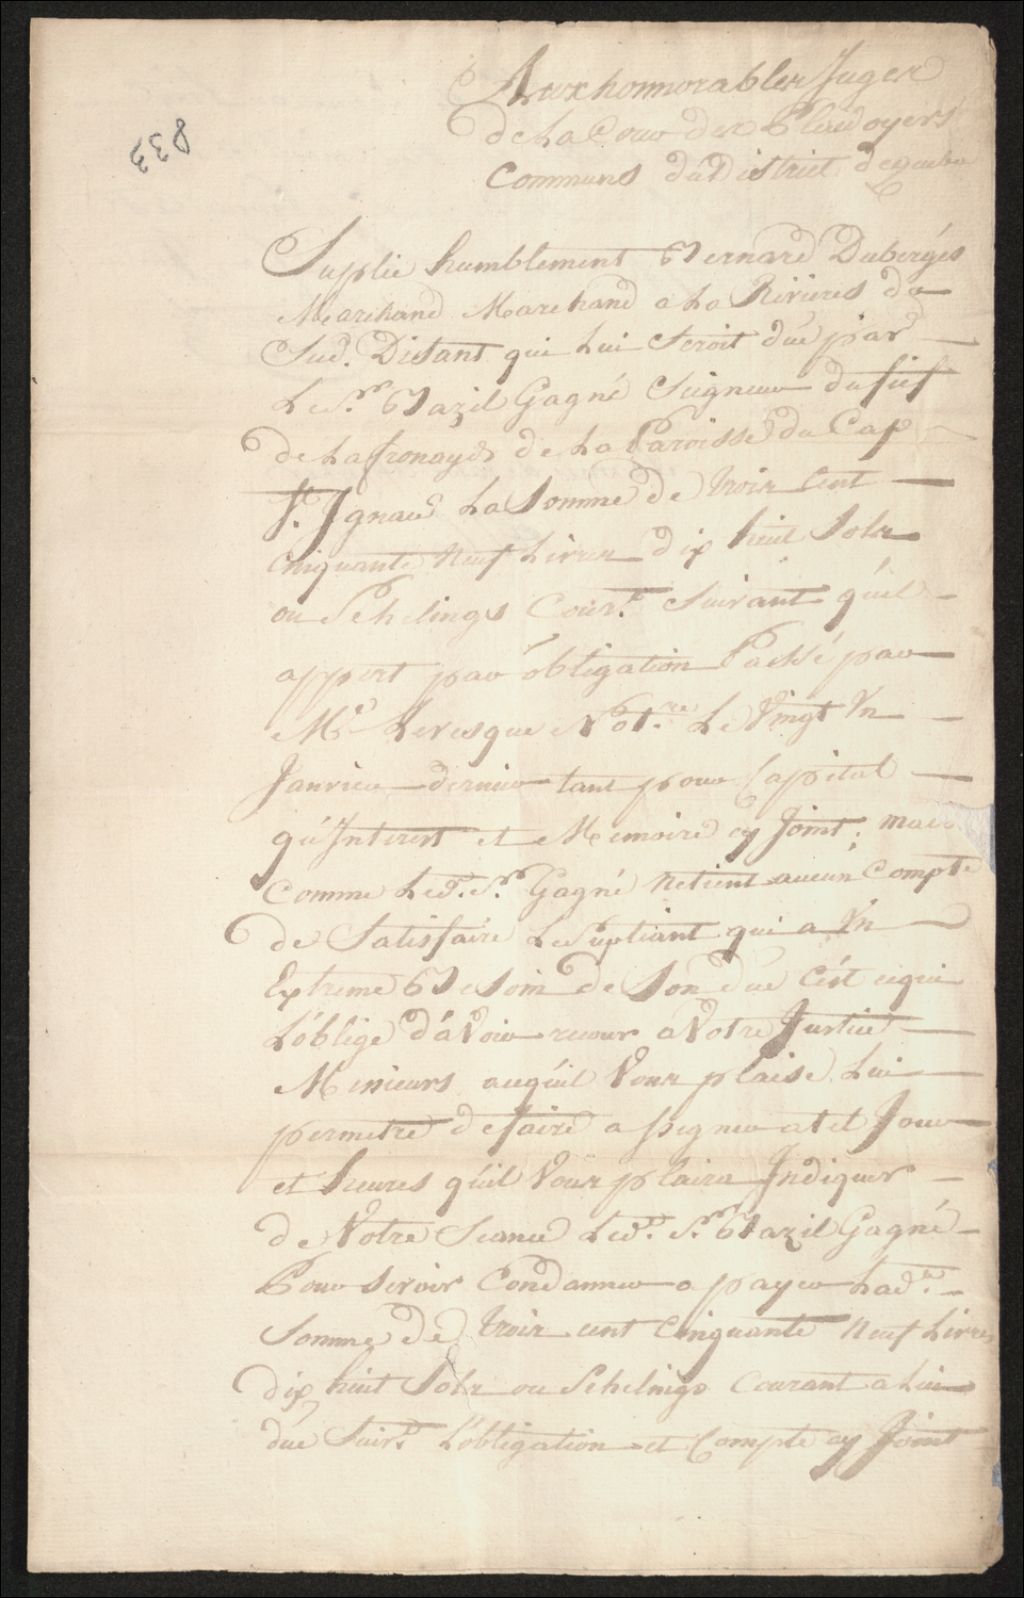 833
Aux honnorables Juges
de la Cour des Plaidoyers
Communs du District de quebec
Suplie humblement Bernard Dubergés
Marchand Marchand a la Rivieres du
Sud. Disant qui Lui Seroit düe par
Le Sr. Bazil Gagné Seigneur du fief
de Lafrenaye de La Paroisse du Cap
St. Ignace La Somme de Trois Cent
Cinquante Neuf Livres dix huit Sols
ou Schelings Cour.t Suivant qu'il
appert par obligation Passé par
Mre. Levesque Not.re Le Vingt Un
Janvier dernier tant pour Capital
qu'Interest et Memoire cy Joint; mais
Comme Led. Sr. Gagné Netient aucun Compte
de Satisfaire Le Supliant qui a Un
Extreme Besoin de Son due C'est cequi
L'oblige d'avoir recour a Votre Justice
Messieurs auquil Vous plaise Lui
permetre de faire assigner a tel Jour
et heures quil Vous plaira Indiquer
de Votre Seance Led. Sr. Bazil Gagné
Pour Servir Condamner a payer Lad.e
Somme de Trois cent Cinquante Neuf Livres
dix huit Sols ou Schelings Courant a Lui
düe Suiv.t L'obligation et Compte cy Joint